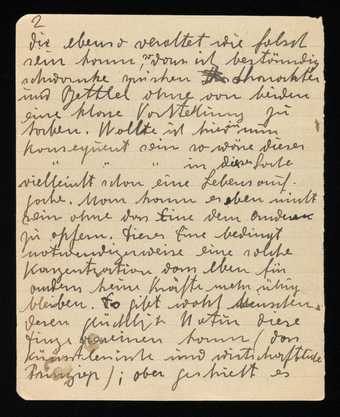 2
die ebenso veraltet wie falsch
sein kann, dann ist beständig
schwanke zwischen Charakter
und Bettlel ohne von beiden
eine klare Vorstellung zu
haben. Wollte ich hier nun
konsequent sein so wäre dieses
" " " in dieser Sache
vielleicht schon eine Lebensauf-
gabe. Man kann es eben nicht
sein ohne das Eine dem anderen
zu opfern. Dieses Eine bedingt
notwendigerweise eine solche
Konzentration dass eben für
anders keine Kräfte mehr übrig
bleiben. Es gibt wohl Menschen
deren glückliche Natur diese
Dinge vereinen kann (das
künstlerische und wirtschaftliche
Prinzip); aber geschieht es